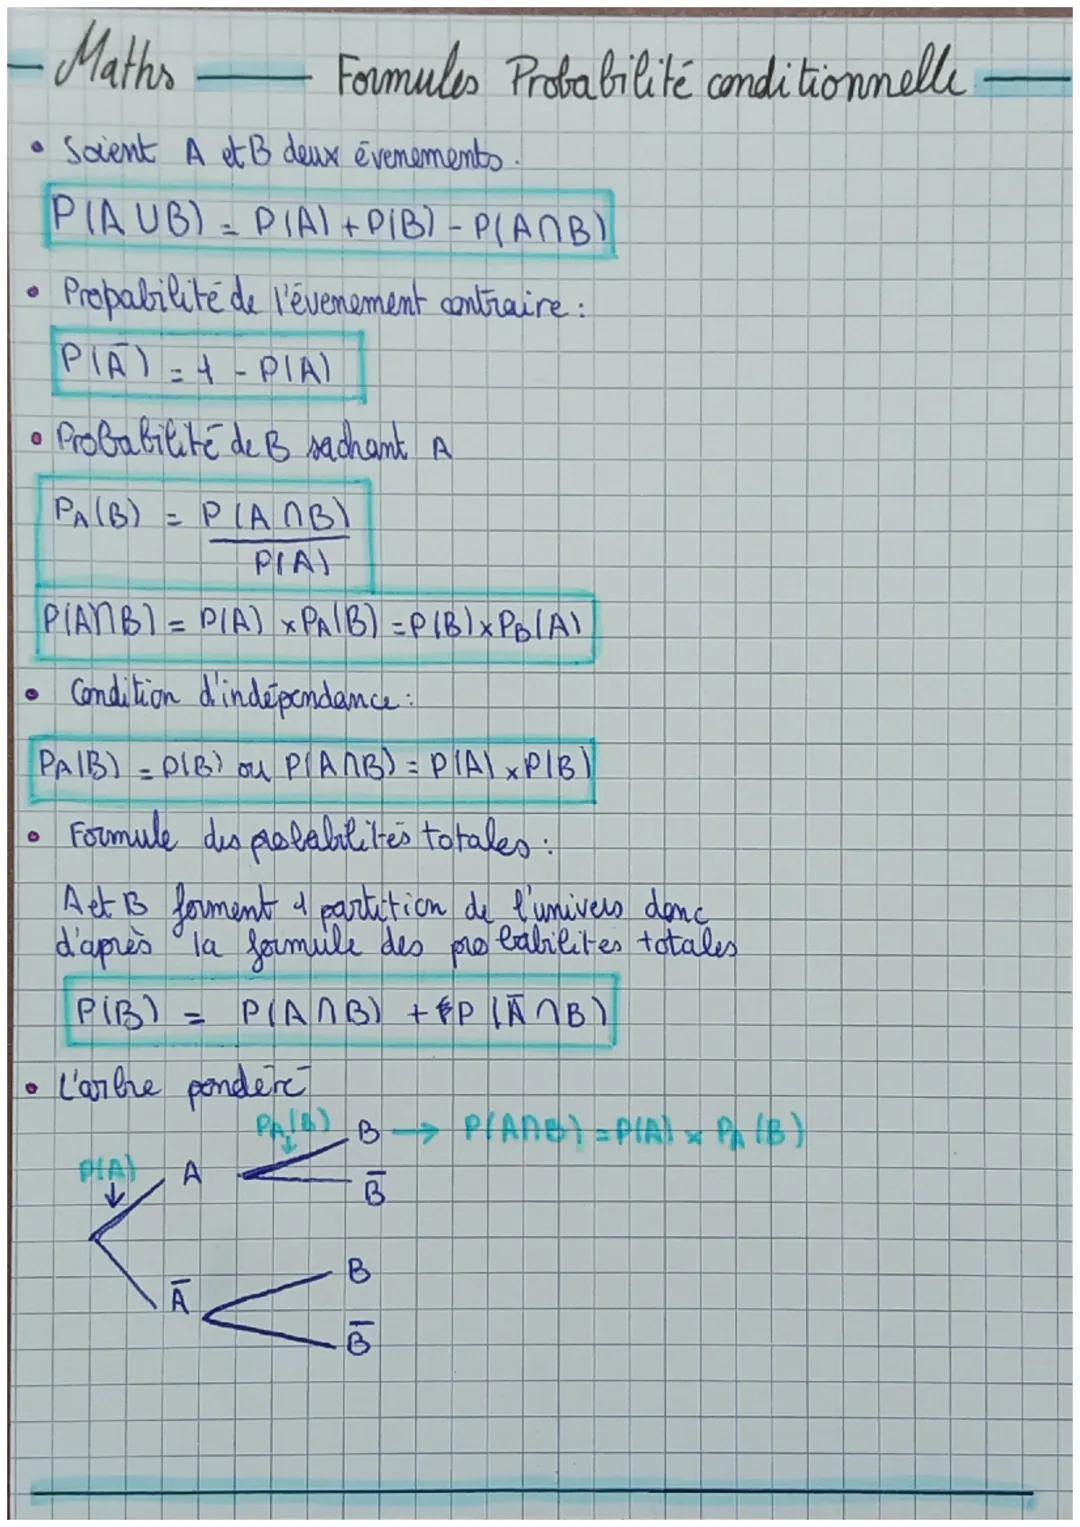 Maths Formules Probabilité conditionnelle
• Soient A et B deux évenements.
P(A∪B) = P(A) + P(B) - P(A∩B)
• Propabilité de l'évenement contraire :
P(Ā) = 1 - P(A)
• Probabilité de B sachant A
PA(B) = P(A∩B)
P(A)
P(A∩B) = P(A) × PA(B) = P(B) × PB(A)
• Condition d'indépendance :
PA(B) = P(B) ou P(A∩B) = P(A) × P(B)
• Formule des probabilités totales :
A et B forment 1 partition de l'univers donc
d'après la formule des probabilites totales
P(B) = P(A∩B) + P(Ā∩B)
• L'arbre pondéré
PA(B) B → P(A∩B) = P(A) × PA(B)
P(A) A
B̄
B
Ā
B̄